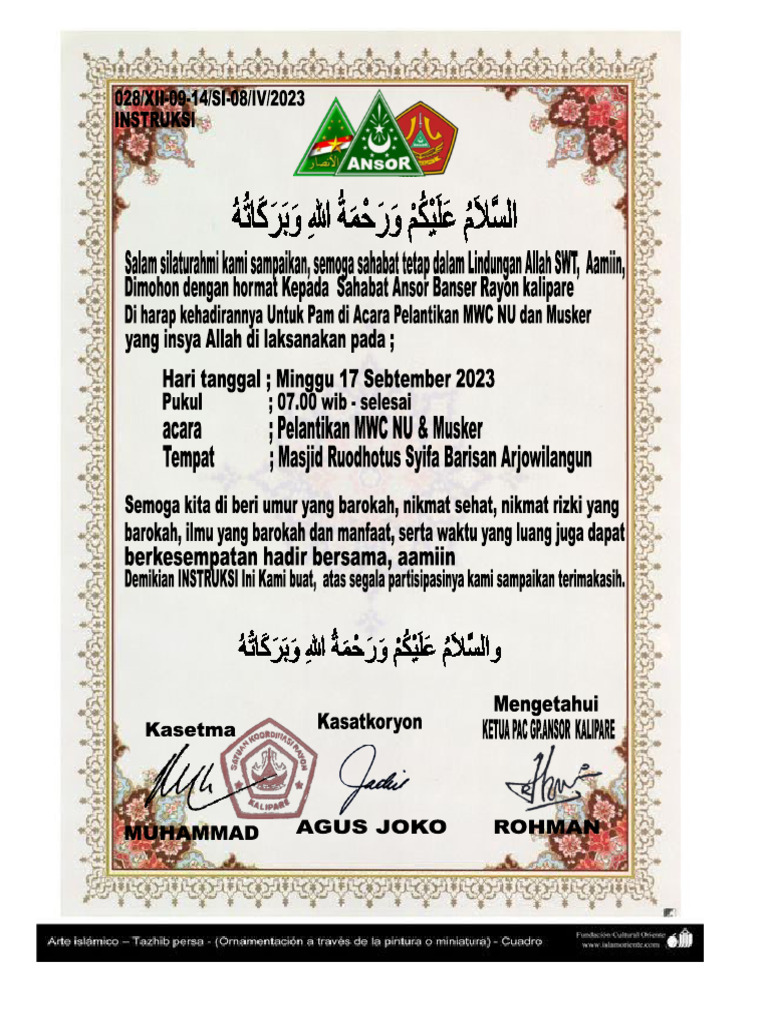 028/XII-09-14/SI-08/IV/2023
INSTRUKSI
الأنصار
ANSOR
السَّلَامُ عَلَيْكُمْ وَرَحْمَةُ اللهِ وَبَرَكَاتُهُ
Salam silaturahmi kami sampaikan, semoga sahabat tetap dalam Lindungan Allah SWT, Aamiin,
Dimohon dengan hormat Kepada Sahabat Ansor Banser Rayon kalipare
Di harap kehadirannya Untuk Pam di Acara Pelantikan MWC NU dan Musker
yang insya Allah di laksanakan pada ;
Hari tanggal ; Minggu 17 Sebtember 2023
Pukul ; 07.00 wib - selesai
acara ; Pelantikan MWC NU & Musker
Tempat ; Masjid Ruodhotus Syifa Barisan Arjowilangun
Semoga kita di beri umur yang barokah, nikmat sehat, nikmat rizki yang
barokah, ilmu yang barokah dan manfaat, serta waktu yang luang juga dapat
berkesempatan hadir bersama, aamiin
Demikian INSTRUKSI Ini Kami buat, atas segala partisipasinya kami sampaikan terimakasih.
والسَّلَامُ عَلَيْكُمْ وَرَحْمَةُ اللهِ وَبَرَكَاتُهُ
Kasetma
Kasatkoryon
Mengetahui
KETUA PAC GP.ANSOR KALIPARE
SATUAN KOORDINASI RAYON
KALIPARE
MUHAMMAD
AGUS JOKO
ROHMAN
Arte islámico – Tazhib persa - (Ornamentación a través de la pintura o miniatura) - Cuadro
Fundación Cultural Oriente
www.islamoriente.com